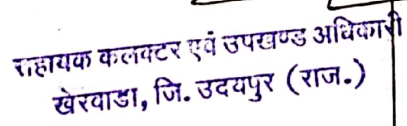 सहायक कलक्टर एवं उपखण्ड अधिकारी
खेरवाडा, जि. उदयपुर (राज.)